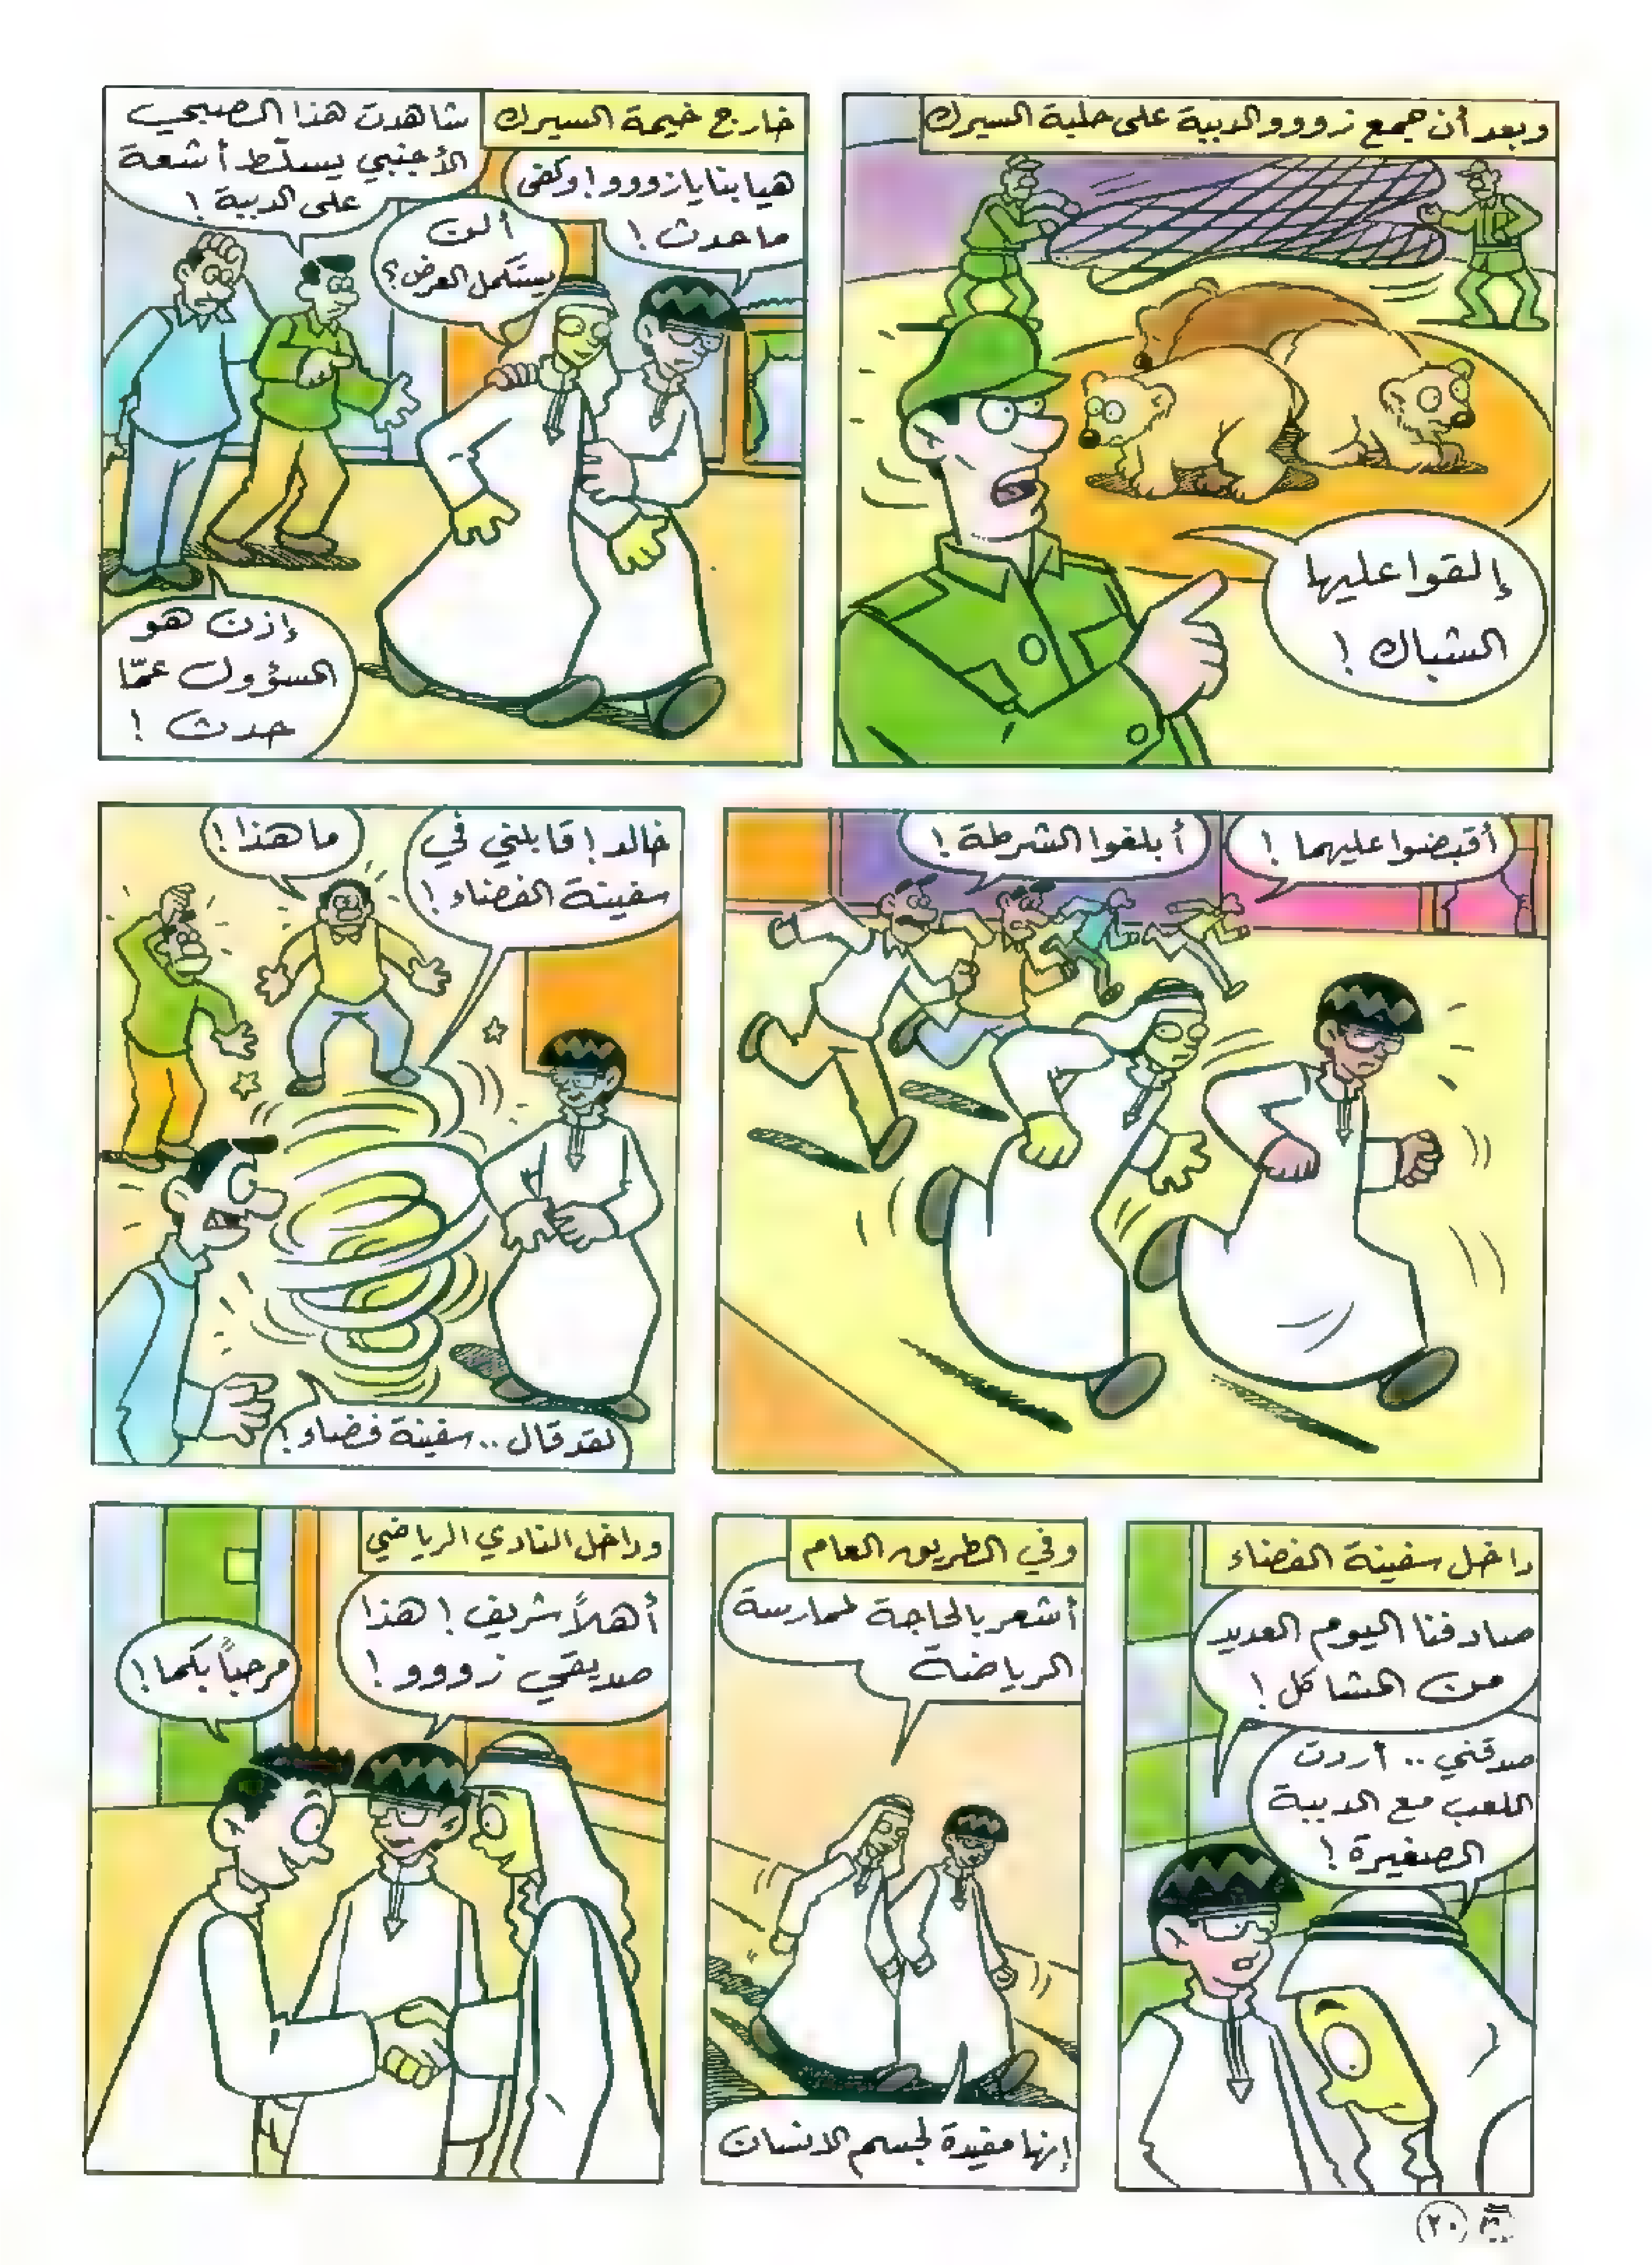 وبعد أن جمع زووو الدببة على حلبة السيرك
إلقوا عليها
الشباك !
خارج خيمة السيرك
هيا بنا يا زووو ! وكفى
ما حدث !
ألن
يستكمل العرض ؟
شاهدت هذا الصبي
الأجنبي يسلّط أشعة
على الدببة !
إذن هو
المسؤول عمّا
حدث !
أقبضوا عليهما !
أبلغوا الشرطة !
خالد ! قابلني في
سفينة الفضاء !
ما هذا !
لقد قال .. سفينة فضاء !
داخل سفينة الفضاء
صادفنا اليوم العديد
من المشاكل !
صدقني .. أردت
اللعب مع الدببة
الصغيرة !
وفي الطريق العام
أشعر بالحاجة لممارسة
الرياضة
إنها مفيدة لجسم الانسان
وداخل النادي الرياضي
أهلاً شريف ! هذا
صديقي زووو !
مرحباً بكما !
٢٠